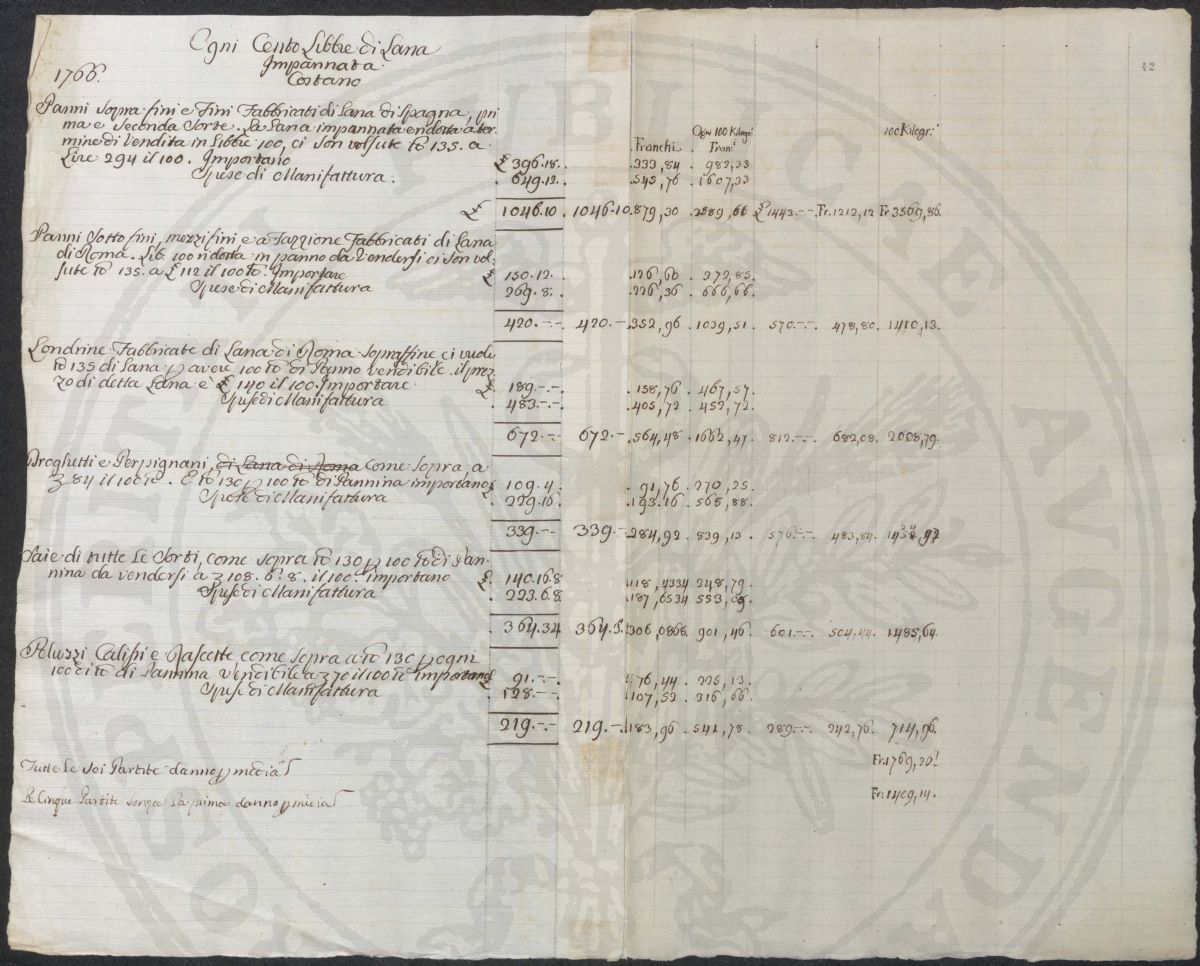 42
Ogni Cento Libbre di Lana
Impannata
Costano
1766.
Panni sopra fini e Fini Fabbricati di Lana di Spagna, pri
ma e Seconda Sorte. La Lana impannata e ridotta a ter
mine di vendita in Libbre 100, ci son volsute ℔ 135. a
Lire 294 il 100. Importano £ 396.18. 333,84 982,33
Spese di Manifattura. 649.12. 545,76 1607,33
Franchi Ogni 100 Kilogr. Fran. 100 Kilogr.
£ 1046.10 1046.10. 879,30 2589,66 £ 1443.-- Fr. 1212,12 Fr. 3569,86.
Panni Sotto fini, mezzi fini e a Fazzione Fabbricati di Lana
di Roma. Lib. 100 ridotta in panno da Vendersi ci son vol-
sute ℔ 135. a £ 112 il 100 ℔. Importare £ 150.12. 126,60 372,85.
Spese di Manifattura 269.8. 226,36 666,66.
420.-- 420.-- 352,96 1039,51 570.-- 478,80. 1410,13.
Londrine Fabbricate di Lana di Roma Sopraffine ci vuole
℔ 135 di Lana p avere 100 ℔ di Panno vendibile. il prez-
zo di detta Lana e £ 140 il 100. Importare £ 189.-.- 158,76 467,57.
Spese di Manifattura 483.-.- 405,72 452,72.
672.-- 672.-- 564,48 1662,47. 812.-- 682,08. 2008,79.
Droghetti e Perpignani, di Lana di Roma come sopra, a
£ 84 il 100 ℔. E ℔ 130 p 100 ℔ di Pannina importano £ 109.4. 91,76 270,25.
Spese di Manifattura 229.16. 193.16 568,88.
339.-- 339.-- 284,92 839,13 576.-- 483,84. 97
Saie di tutte Le Sorti, come sopra ℔ 130 p 100 ℔ di Pan-
nina da vendersi a £ 108.6.8. il 100. importano £ 140.16.8 118,4334 348,79.
Spese di Manifattura 223.6.8. 187,6534 553,
364.34 364.3. 306,0868. 901,46. 601.-- 504,44. 1485,64.
Peluzzi Calisi e Rascette come sopra a ℔ 130 p ogni
100 di ℔ di Pannina Vendibile a £ 70 il 100 ℔ importano £ 91.-- 76,44 225,13.
Spese di Manifattura 128.-- 107,52 316,66.
219.-.- 219.-.- 183,96 541,78. 289.-- 242,76. 714,96.
Tutte Le Sei Partite danno p media Fr. 1769,20
Le Cinque Partite senza La prima danno p media Fr. 1409,14.